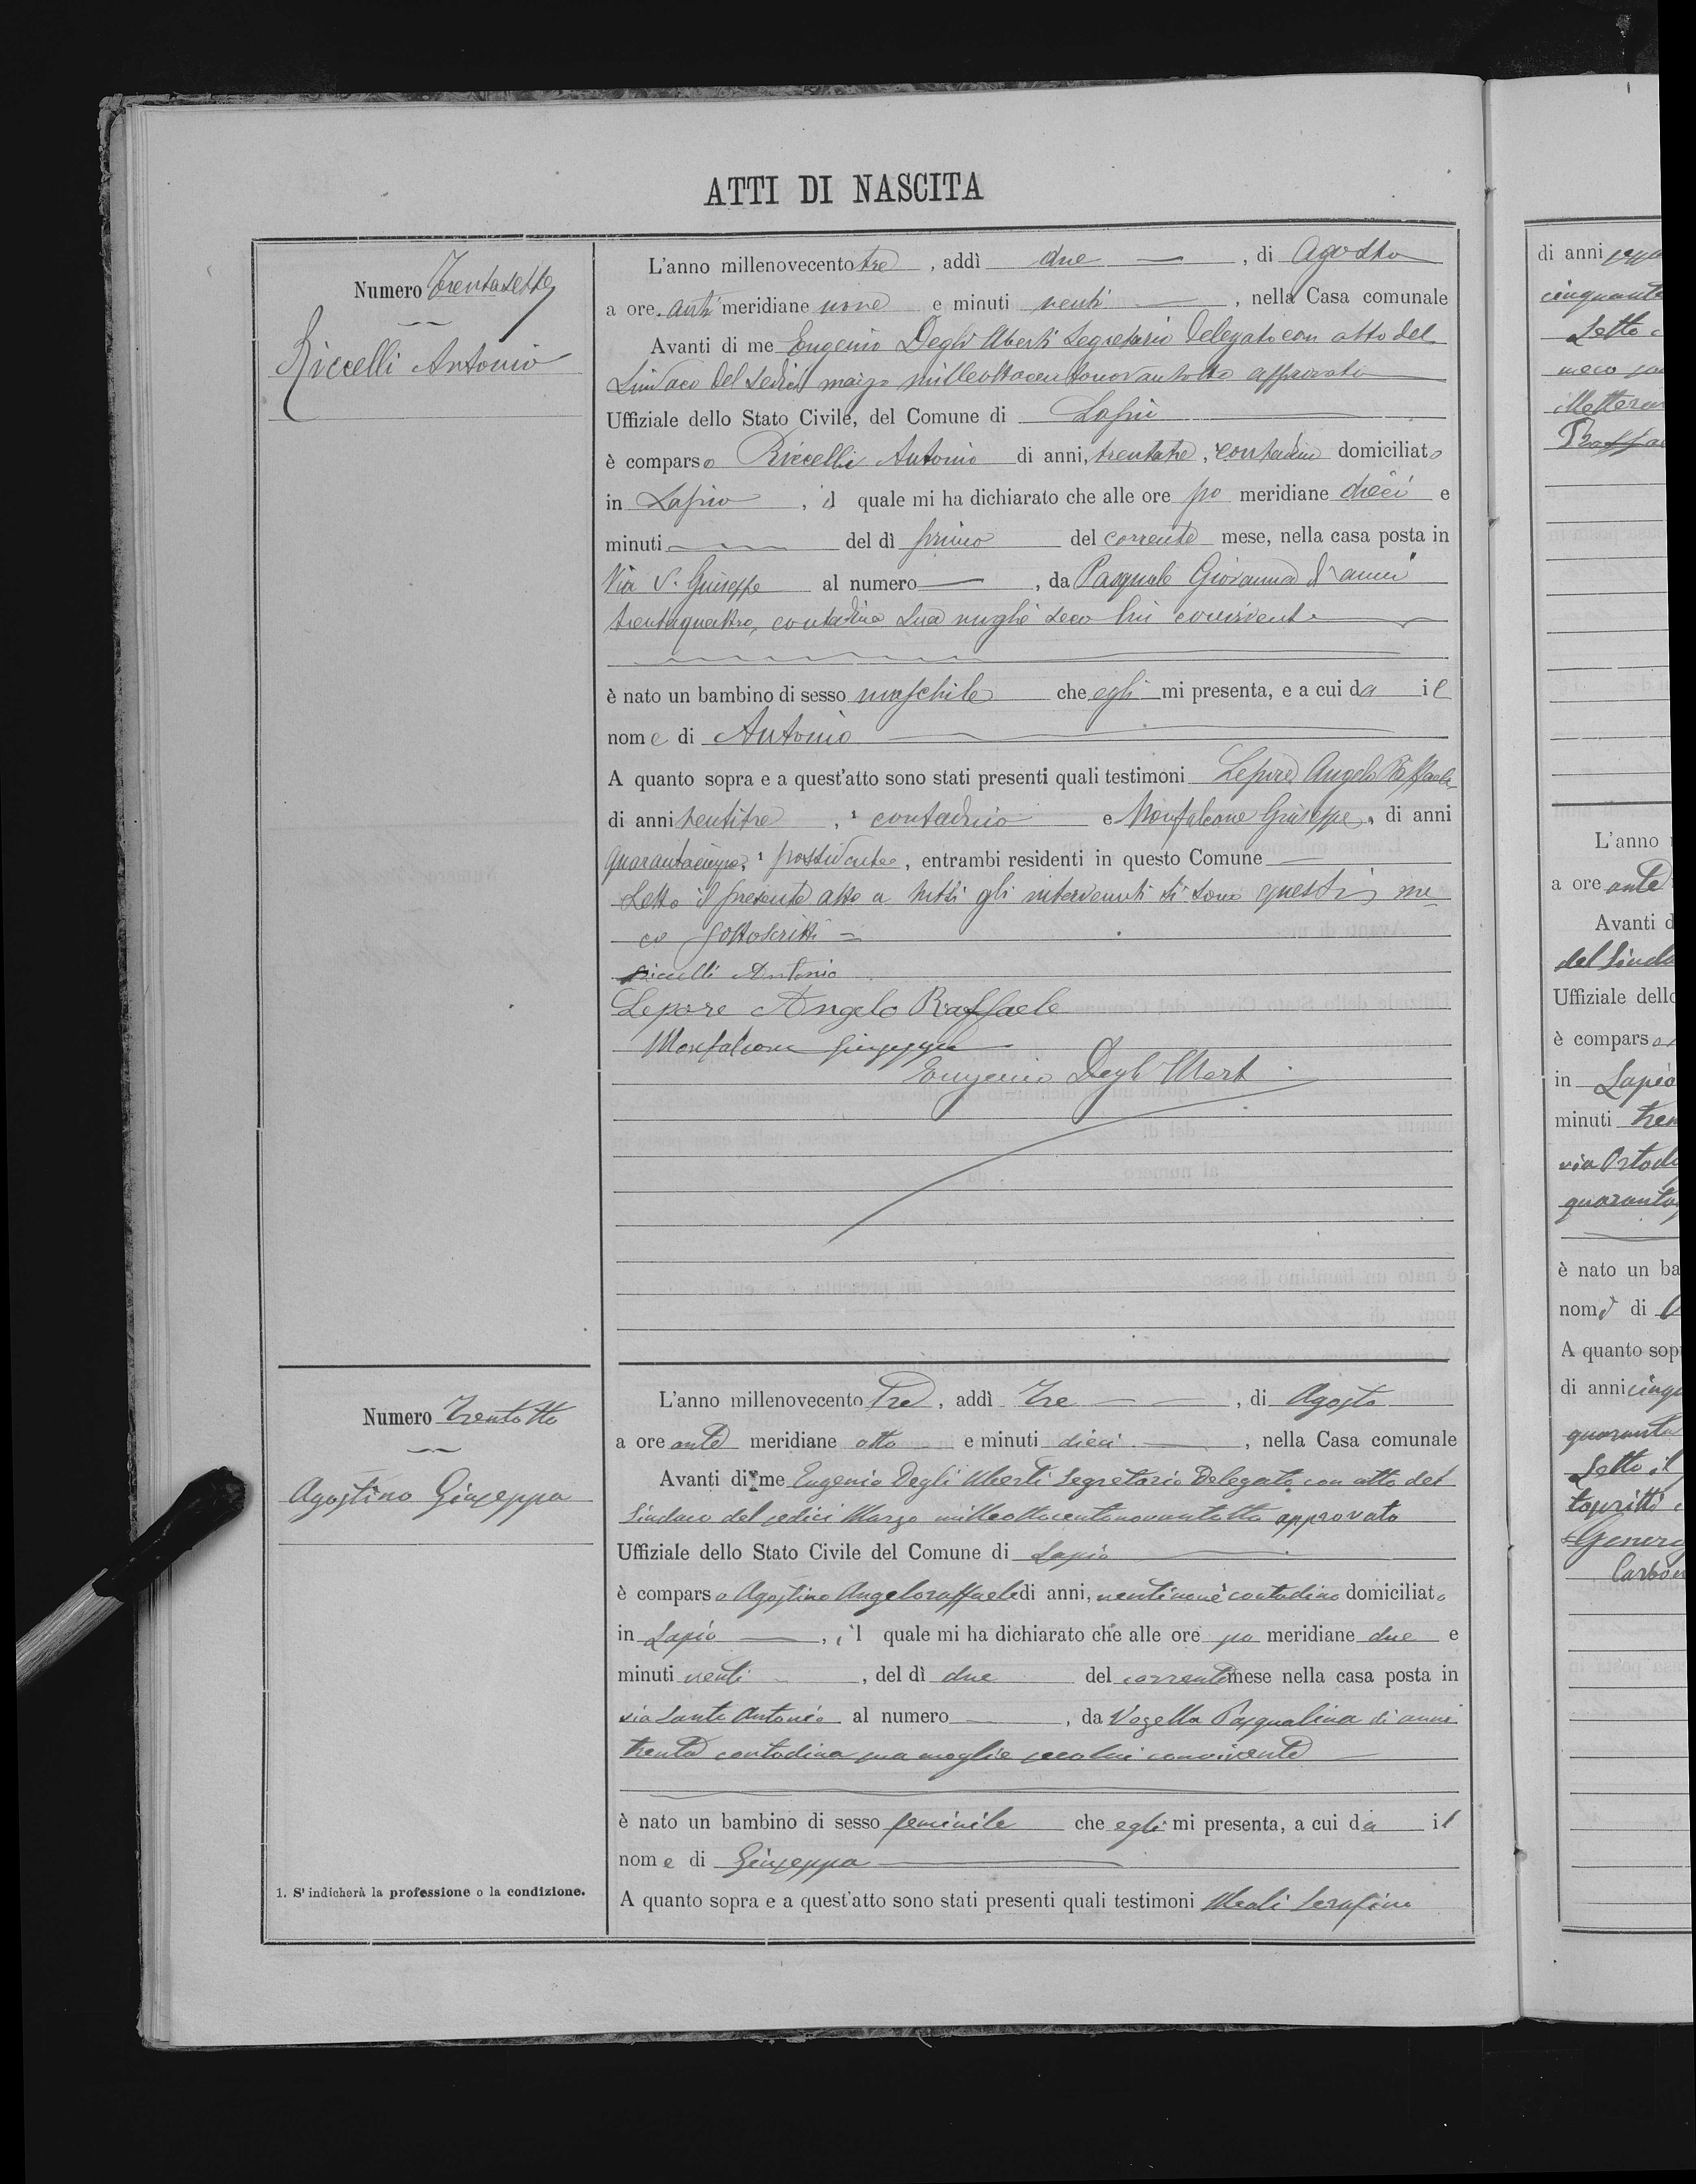 ATTI DI NASCITA
Numero Trentasette
Riccelli Antonio
L'anno millenovecento tre, addì due, di Agosto
a ore anti meridiane nove e minuti venti, nella Casa comunale
Avanti di me Eugenio Degli Uberti Segretario Delegato con atto del
Sindaco del sedici marzo milleottocentonovantotto approvato
Uffiziale dello Stato Civile, del Comune di Lapio
è comparso Riccelli Antonio di anni, trentatre, contadino domiciliato
in Lapio, il quale mi ha dichiarato che alle ore po meridiane dieci e
minuti del dì primo del corrente mese, nella casa posta in
Via S. Giuseppe al numero, da Pasquale Giovanna di anni
trentaquattro, contadina sua moglie seco lui convivente
è nato un bambino di sesso maschile che egli mi presenta, e a cui da il
nome di Antonio
A quanto sopra e a quest'atto sono stati presenti quali testimoni Lepore Angelo Raffaele
di anni ventitre, 1 contadino e Monfalcone Giuseppe, di anni
quarantacinque, 1 possidente, entrambi residenti in questo Comune
Letto il presente atto a tutti gli intervenuti si sono questi me
co sottoscritti =
Riccelli Antonio
Lepore Angelo Raffaele
Monfalcone Giuseppe
Eugenio Degli Uberti
Numero Trentotto
Agostino Giuseppa
L'anno millenovecento Tre, addì Tre, di Agosto
a ore ante meridiane otto e minuti dieci, nella Casa comunale
Avanti di me Eugenio Degli Uberti Segretario Delegato con atto del
Sindaco del sedici Marzo milleottocentonovantotto approvato
Uffiziale dello Stato Civile del Comune di Lapio
è comparso Agostino Angeloraffaele di anni, ventinove contadino domiciliato
in Lapio, il quale mi ha dichiarato che alle ore po meridiane due e
minuti venti, del dì due del corrente mese nella casa posta in
via Sante Antonio al numero, da Vozella Pasqualina di anni
trenta contadina sua moglie seco lui convivente
è nato un bambino di sesso feminile che egli mi presenta, a cui da il
nome di Giuseppa
1. S'indicherà la professione o la condizione.
A quanto sopra e a quest'atto sono stati presenti quali testimoni Meoli Serafino
di anni
cinquanta
Letto
meco
L'anno
a ore ante
Avanti d
del Sinda
Uffiziale dello
è comparso
in Lapio
minuti tren
via
quaranta
è nato un ba
nome di
A quanto sop
di anni cinqu
quaranta
Letto il